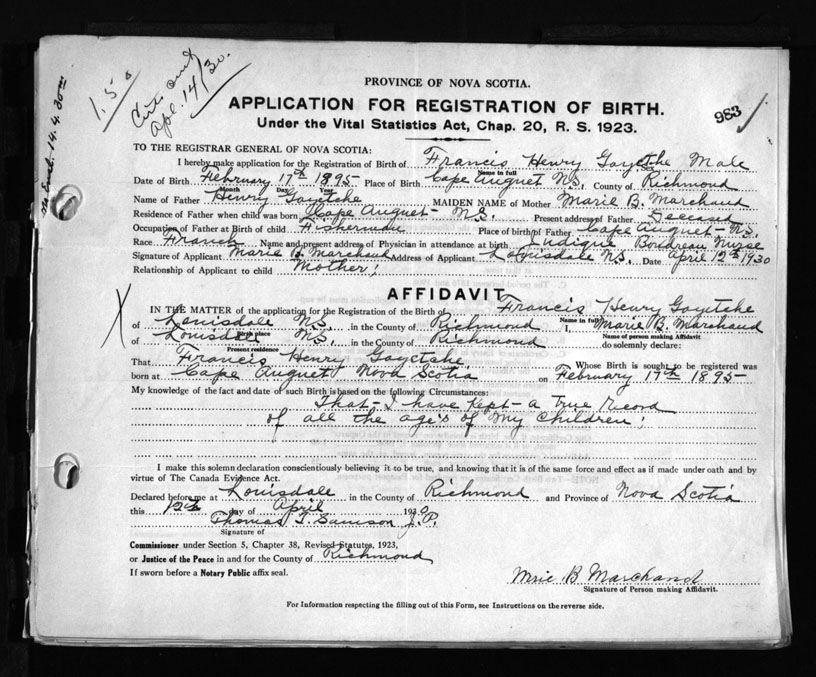 1.50
Apl. 14/30.
PROVINCE OF NOVA SCOTIA.
APPLICATION FOR REGISTRATION OF BIRTH.
983
Under the Vital Statistics Act, Chap. 20, R. S. 1923.
TO THE REGISTRAR GENERAL OF NOVA SCOTIA:
I hereby make application for the Registration of Birth of Francis Henry Goyetche Male
Name in full
Date of Birth February 17th 1895 Place of Birth Cape Auguet N.S. County of Richmond
Month Day Year
Name of Father Henry Goyetche MAIDEN NAME of Mother Marie B. Marchand
Residence of Father when child was born Cape Auguet - N.S. Present address of Father Deceased
Occupation of Father at Birth of child Fisherman Place of birth of Father Cape Auguet - N.S.
Race French Name and present address of Physician in attendance at birth Boudreau Nurse
Signature of Applicant Marie B. Marchand Address of Applicant Louisdale N.S. Date April 12th 1930
Relationship of Applicant to child Mother;
AFFIDAVIT
IN THE MATTER of the application for the Registration of the Birth of Francis Henry Goyetche
Name in full
of Louisdale N.S. in the County of Richmond I, Marie B. Marchand
Birth place Name of person making Affidavit
of Louisdale N.S. in the County of Richmond do solemnly declare:
Present residence
That Francis Henry Goyetche Whose Birth is sought to be registered was
born at Cape Auguet Nova Scotia on February 17th 1895
My knowledge of the fact and date of such Birth is based on the following Circumstances:
That - I have Kept - a True Record
of all the age's of My Children;
I make this solemn declaration conscientiously believing it to be true, and knowing that it is of the same force and effect as if made under oath and by
virtue of The Canada Evidence Act.
Declared before me at Louisdale in the County of Richmond and Province of Nova Scotia
this 12th day of April 1930
Thomas J. Samson J.P.
Signature of
Commissioner under Section 5, Chapter 38, Revised Statutes, 1923,
or Justice of the Peace in and for the County of Richmond
If sworn before a Notary Public affix seal.
Mrie B Marchand
Signature of Person making Affidavit.
For Information respecting the filling out of this Form, see Instructions on the reverse side.